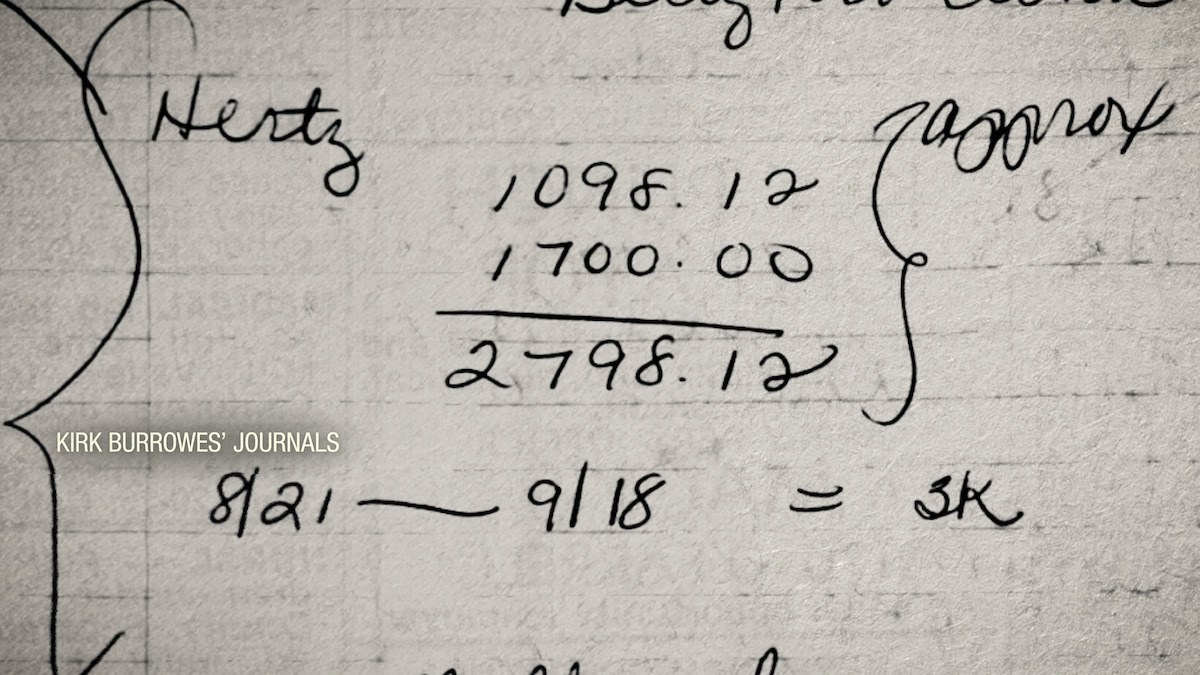 Hertz
approx
1098.12
1700.00
2798.12
KIRK BURROWES' JOURNALS
8/21 — 9/18 = 3K